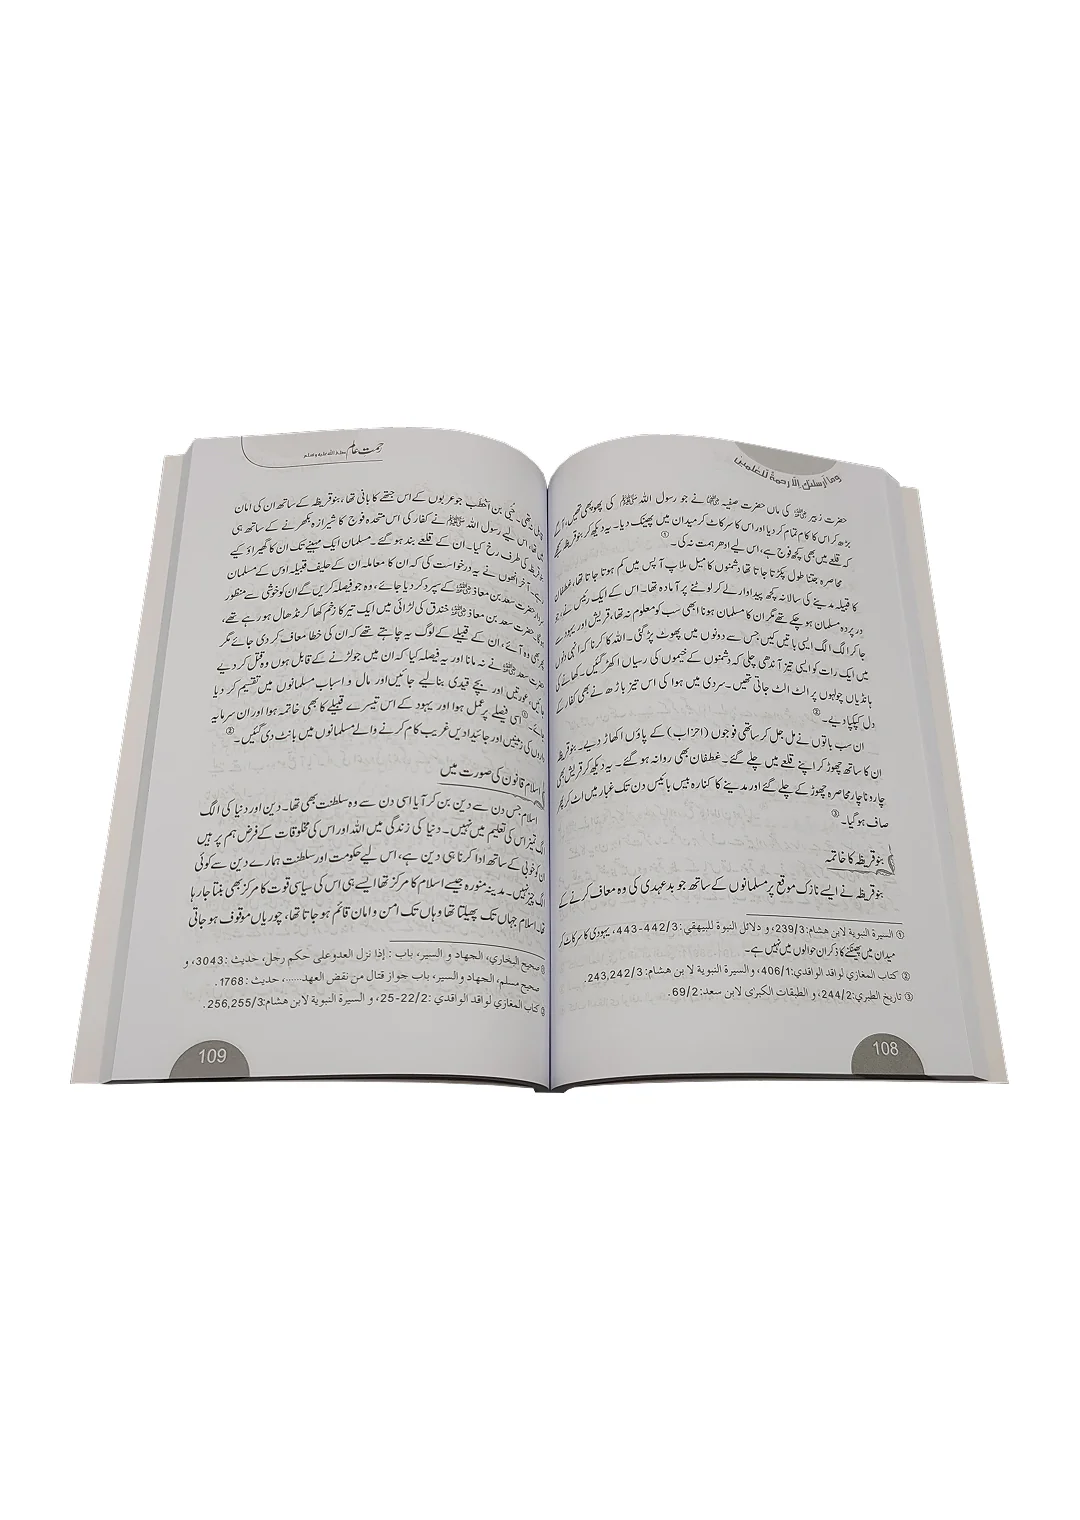 وما أرسلنك إلا رحمة للعلمين
حضرت زبیر رضی اللہ عنہ کی ماں حضرت صفیہ رضی اللہ عنہا نے جو رسول اللہ ﷺ کی پھوپھی تھیں، آگے
بڑھ کر اس کا کام تمام کر دیا اور اس کا سر کاٹ کر میدان میں پھینک دیا۔ یہ دیکھ کر بنو قریظہ سمجھے
کہ قلعے میں بھی کچھ فوج ہے، اس لیے ادھر ہمت نہ کی۔ ①
محاصرہ جتنا طول پکڑتا جاتا تھا، دشمنوں کا میل ملاپ آپس میں کم ہوتا جاتا تھا، غطفان
کا قبیلہ مدینے کی سالانہ کچھ پیداوار لے کر لوٹنے پر آمادہ تھا۔ اس کے ایک رئیس نے، جو
در پردہ مسلمان ہو چکے تھے مگر ان کا مسلمان ہونا ابھی سب کو معلوم نہ تھا، قریش اور یہود سے
جا کر الگ الگ ایسی باتیں کیں جس سے دونوں میں پھوٹ پڑ گئی۔ اللہ کا کرنا کہ انھی دنوں
میں ایک رات کو ایسی تیز آندھی چلی کہ دشمنوں کے خیموں کی رسیاں اکھڑ گئیں۔ کھانے کی
ہانڈیاں چولہوں پر الٹ الٹ جاتی تھیں۔ سردی میں ہوا کی اس تیز باڑھ نے بھی کفار کے
دل کپکپا دیے۔ ②
ان سب باتوں نے مل جل کر ساتھی فوجوں (احزاب) کے پاؤں اکھاڑ دیے۔ بنو قریظہ
ان کا ساتھ چھوڑ کر اپنے قلعے میں چلے گئے۔ غطفان بھی روانہ ہو گئے۔ یہ دیکھ کر قریش بھی
چار و ناچار محاصرہ چھوڑ کے چلے گئے اور مدینے کا کنارہ بیس بائیس دن تک غبار میں اٹ کر پھر
صاف ہو گیا۔ ③
بنو قریظہ کا خاتمہ
بنو قریظہ نے ایسے نازک موقع پر مسلمانوں کے ساتھ جو بد عہدی کی وہ معاف کرنے کے
① السيرة النبوية لابن هشام: 239/3، و دلائل النبوة للبيهقي: 442/3-443، یہودی کا سر کاٹ کر
میدان میں پھینکنے کا ذکر ان حوالوں میں نہیں ہے۔
② كتاب المغازي لواقد الواقدي: 406/1، و السيرة النبوية لا بن هشام: 243,242/3.
③ تاريخ الطبري: 244/2، و الطبقات الكبرى لابن سعد: 69/2.
108
رحمت عالم صلی اللہ علیہ وسلم
نہ تھی۔ حُیَی بن اخطب جو عربوں کے اس جتھے کا بانی تھا، بنو قریظہ کے ساتھ ان کی امان
میں تھا، اس لیے رسول اللہ ﷺ نے کفار کی اس متحدہ فوج کا شیرازہ بکھرنے کے ساتھ ہی
بنو قریظہ کی طرف رخ کیا۔ ان کے قلعے بند ہو گئے۔ مسلمان ایک مہینے تک ان کا گھیراؤ کیے
رہے۔ آخر انھوں نے یہ درخواست کی کہ ان کا معاملہ ان کے حلیف قبیلہ اوس کے مسلمان
سردار حضرت سعد بن معاذ رضی اللہ عنہ کے سپرد کر دیا جائے، وہ جو فیصلہ کریں گے ان کو خوشی سے منظور
ہوگا۔ حضرت سعد بن معاذ رضی اللہ عنہ خندق کی لڑائی میں ایک تیر کا زخم کھا کر نڈھال ہو رہے تھے،
پھر بھی وہ آئے، ان کے قبیلے کے لوگ یہ چاہتے تھے کہ ان کی خطا معاف کر دی جائے مگر
حضرت سعد رضی اللہ عنہ نے نہ مانا اور یہ فیصلہ کیا کہ ان میں جو لڑنے کے قابل ہوں وہ قتل کر دیے
جائیں، عورتیں اور بچے قیدی بنا لیے جائیں اور مال و اسباب مسلمانوں میں تقسیم کر دیا
جائے۔ ① اسی فیصلے پر عمل ہوا اور یہود کے اس تیسرے قبیلے کا بھی خاتمہ ہوا اور ان سرمایہ
داروں کی زمینیں اور جائیدادیں غریب کام کرنے والے مسلمانوں میں بانٹ دی گئیں۔ ②
اسلام قانون کی صورت میں
اسلام جس دن سے دین بن کر آیا اسی دن سے وہ سلطنت بھی تھا۔ دین اور دنیا کی الگ
الگ تمیز اس کی تعلیم میں نہیں۔ دنیا کی زندگی میں اللہ اور اس کی مخلوقات کے فرض ہم پر ہیں
ان کو خوبی کے ساتھ ادا کرنا ہی دین ہے، اس لیے حکومت اور سلطنت ہمارے دین سے کوئی
الگ چیز نہیں۔ مدینہ منورہ جیسے اسلام کا مرکز تھا ایسے ہی اس کی سیاسی قوت کا مرکز بھی بنتا جا رہا
تھا۔ اسلام جہاں تک پھیلتا تھا وہاں تک امن و امان قائم ہو جاتا تھا، چوریاں موقوف ہو جاتی
① صحيح البخاري، الجهاد و السير، باب : إذا نزل العدو على حكم رجل، حديث : 3043، و
صحيح مسلم، الجهاد و السير، باب جواز قتال من نقض العهد.....، حديث : 1768.
② كتاب المغازي لواقد الواقدي : 22/2-25، و السيرة النبوية لا بن هشام: 256,255/3.
109